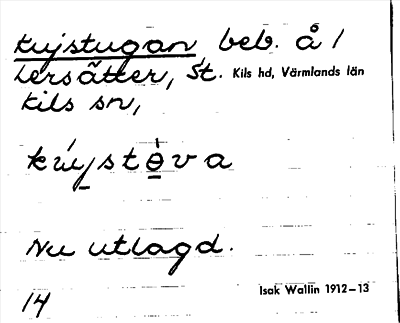 Kujstugan beb. å 1
Lersätter, St. Kils hd, Värmlands län
Kils sn,
kújstòva
Nu utlagd.
14
Isak Wallin 1912–13